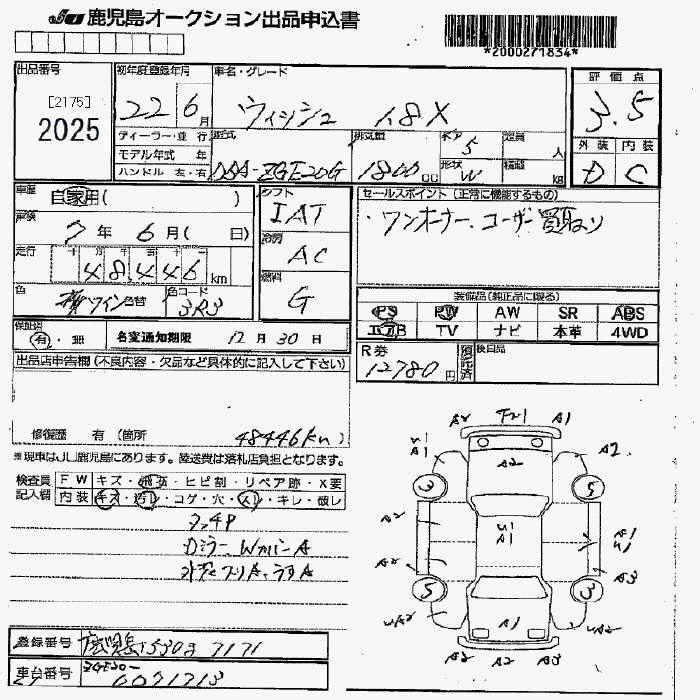 JU 鹿児島オークション出品申込書
*2000271834*
出品番号
[2175]
2025
初年度登録年月
22 6 月
車名・グレード
ウィッシュ 1.8X
評価点
3.5
外装 内装
D C
ディーラー・並行
モデル年式 年
ハンドル 左・右
型式
DBA-ZGE20G
排気量
1800 CC
ドア
5
形状
W
定員
人
積載
kg
車歴
自家用( )
車検
7年 6月( 日)
走行
48,446 km
色
色替
色コード
3R3
シフト
IAT
冷房
AC
燃料
G
セールスポイント(正常に機能するもの)
・ワンオーナー、ユーザー買取り
装備品(純正品に限る)
PS PW AW SR ABS
エアB TV ナビ 本革 4WD
保証書
有・無
名変通知期限 12月30日
R券
12780 円
預託済
検白品
出品店申告欄(不良内容・欠品など具体的に記入して下さい)
修復歴 有(箇所 48446km)
※現車はJU鹿児島にあります。陸送費は落札店負担となります。
検査員記入欄
FW キズ・飛石・ヒビ割・リペア跡・X要
内装 キズ・汚レ・コゲ・穴・スレ・キレ・破レ
カラー、WカバーA
A2 F21 A1
A1
A2
A2
3 5
A2
A1
A1
A2
A3
3 5
A1
A2 A2 A3
登録番号 鹿児島 530 7171
車台番号 ZGE20-
0071713